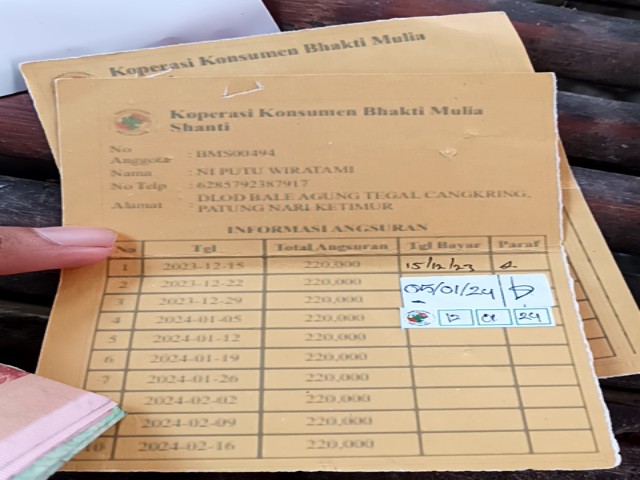 Koperasi Konsumen Bhakti Mulia
Koperasi Konsumen Bhakti Mulia
Shanti
No
Anggota : BMS00494
Nama : NI PUTU WIRATAMI
No Telp : 6285792387917
Alamat : DLOD BALE AGUNG TEGAL CANGKRING,
PATUNG NARI KETIMUR
INFORMASI ANGSURAN
No Tgl Total Angsuran Tgl Bayar Paraf
1 2023-12-15 220,000 15/12/23
2 2023-12-22 220,000
05/01/24
3 2023-12-29 220,000
4 2024-01-05 220,000 12 01 24
5 2024-01-12 220,000
6 2024-01-19 220,000
7 2024-01-26 220,000
2024-02-02 220,000
2024-02-09 220,000
10 2024-02-16 220,000